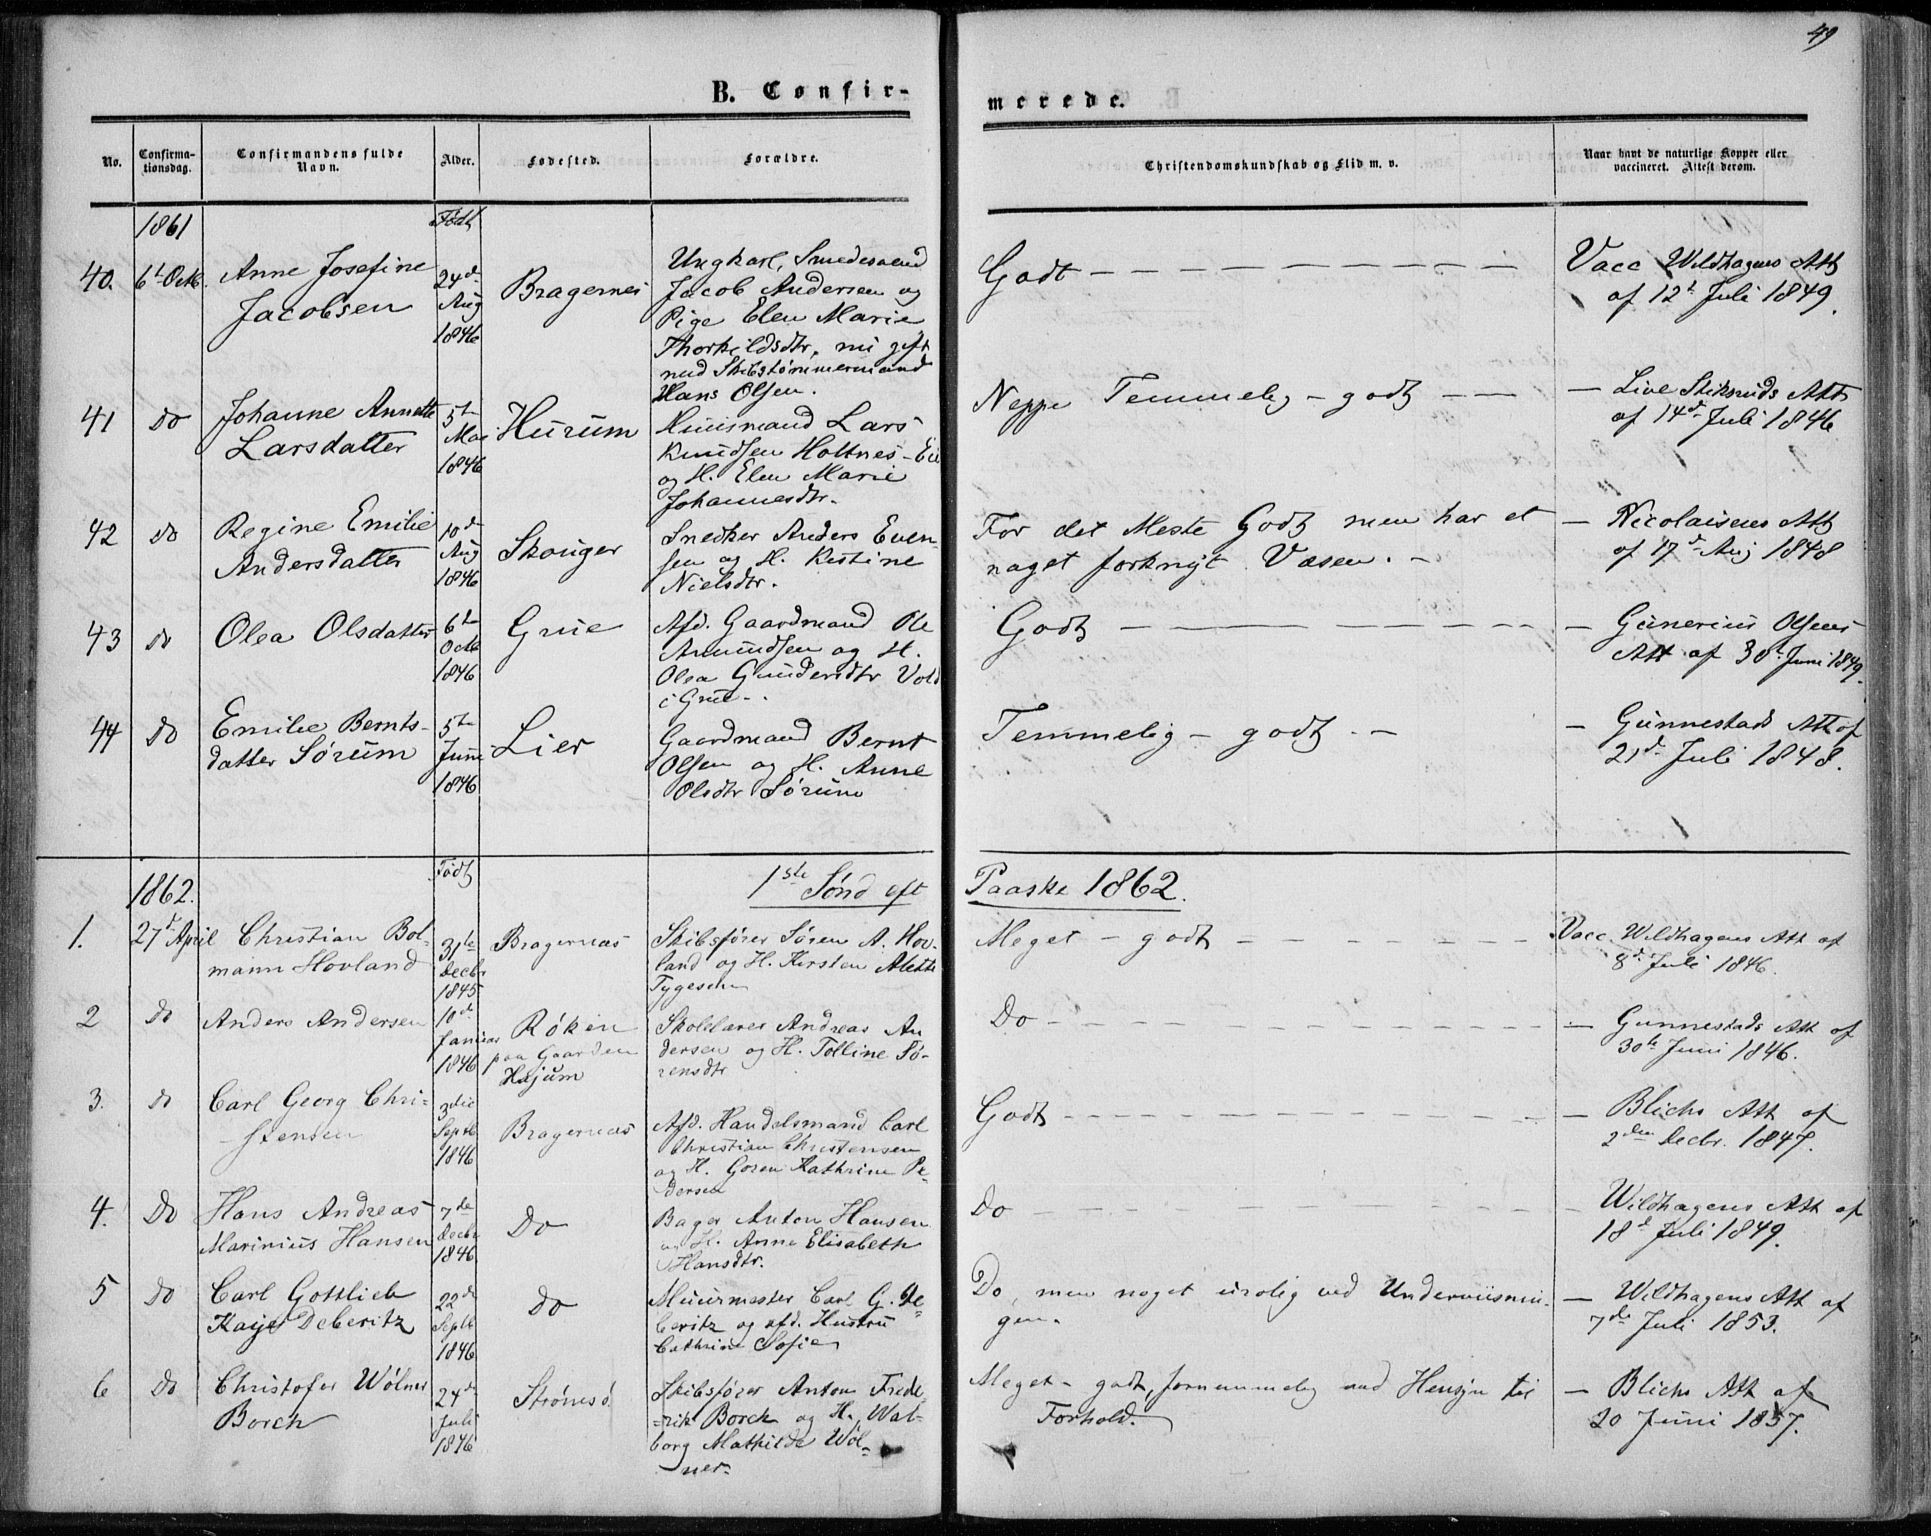 49
B. Confir-
merede.
No.
Confirma-
tionsdag.
Confirmandens fulde
Navn.
Alder.
Fødested.
Forældre.
Christendomskundskab og Flid m. v.
Naar havt de naturlige Kopper eller
vaccineret. Attest derom.
1861
Født
40.
6t Octb.
Anne Josefine
Jacobsen
24d
Aug
1846
Bragernes
Ungkarl, Smedesvend
Jacob Andersen og
Pige Elen Marie
Thorkildsdtr, nu gift
med Skibstømmermand
Hans Olsen.
Godt
Vacc Wildhagens Att
af 12t Juli 1849.
41
Do
Johanne Annette
Larsdatter
5te
Mai
1846
Hurum
Huusmand Lars
Knudsen Holtnes-Eie
og H. Elen Marie
Johannesdtr.
Neppe Temmelig - godt
- Live Stiksruds Att
af 14d Juli 1846
42
Do
Regine Emilie
Andersdatter
10d
Aug
1846
Skouger
Snedker Anders Even-
sen og H. Kirstine
Nielsdtr.
For det Meste Godt men har et
noget forknyt Væsen. -
- Nicolaisens Att
af 17d Aug 1848
43
Do
Olea Olsdatter
6te
Octb
1846
Grue
Afd. Gaardmand Ole
Amundsen og H.
Olea Gundersdtr Vold
i Grue.
Godt
- Gunerius Olsens
Att af 30t Juni 1849.
44
Do
Emilie Bernts-
datter Sørum
5te
Juni
1846
Lier
Gaardmand Bernt
Olsen og H. Anne
Olsdtr Sørum
Temmelig - godt - -
- Gunnestads Att af
21d Juli 1848.
1862.
Født
1ste Sønd eft
Paaske 1862.
1.
27d April
Christian Bol-
mann Hovland
31te
Decbr
1845
Bragernæs
Skibsfører Søren A. Hov-
land og H. Kirsten Alette
Tygesen
Meget - godt
Vacc. Wildhagens Att af
8d Juli 1846.
2
Do
Anders Andersen
10d
Januar
1846
Røken
paa Gaarden
Højum
Skolelærer Andreas An
dersen og H. Tolline Sø-
rensdtr
Do
- Gunnestads Att af
30te Juni 1846.
3.
Do
Carl Georg Chri-
stensen
3die
Septb
1846
Bragernæs
Afd. Handelsmand Carl
Christian Christensen
og H. Goren Kathrine Pe-
dersen
Godt
- Blichs Att af
2den Decbr. 1847.
4.
Do
Hans Andreas
Marinius Hansen
7de
Decbr
1846
Do
Bager Anton Hansen
og H. Anne Elisabeth
Hansdtr.
Do
- Wildhagens Att af
18d Juli 1849.
5
Do
Carl Gottlieb
Kaye Deberitz
22d
Septb
1846
Do
Muurmester Carl G. De-
beritz og afd. Hustru
Cathrine Sofie
Do, men noget urolig ved Underviisnin-
gen.
- Wildhagens Att af
7de Juli 1853.
6
Do
Christofer Wølner
Borch
24d
Juli
1846
Strømsø
Skibsfører Anton Frede
-rik Borch og H. Wal-
borg Mathilde Wøl-
ner.
Meget - godt, fornemmelig med Hensyn til
Forhold.
- Blichs Att af
20 Juni 1857.